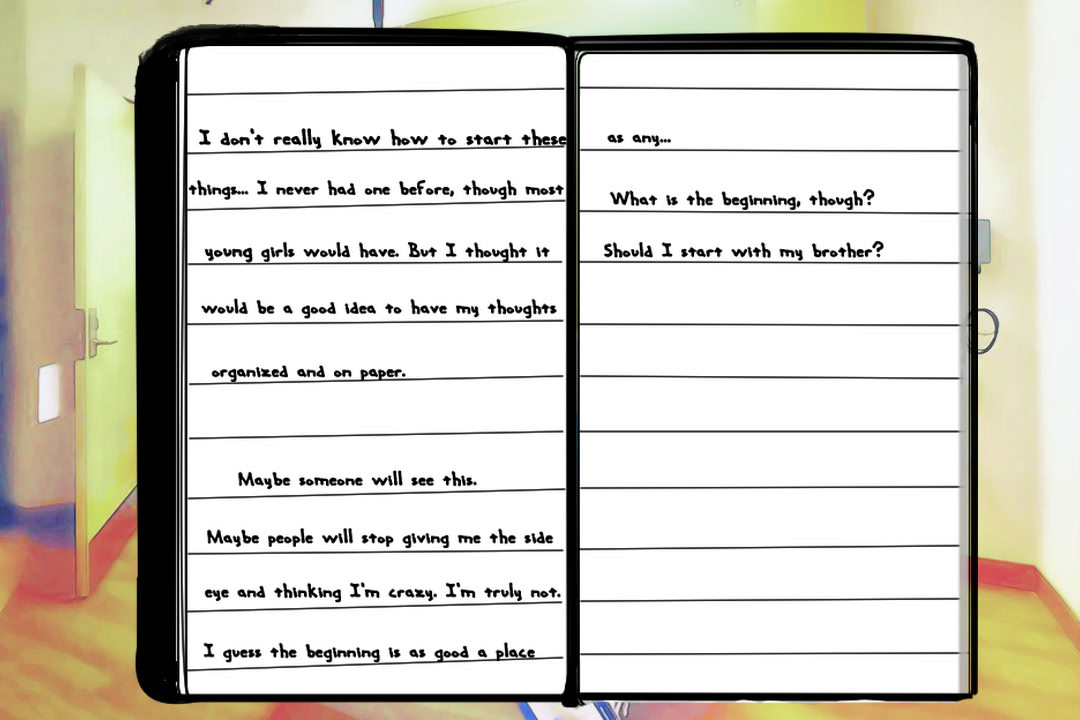 I don't really know how to start these
things... I never had one before, though most
young girls would have. But I thought it
would be a good idea to have my thoughts
organized and on paper.
Maybe someone will see this.
Maybe people will stop giving me the side
eye and thinking I'm crazy. I'm truly not.
I guess the beginning is as good a place
as any...
What is the beginning, though?
Should I start with my brother?